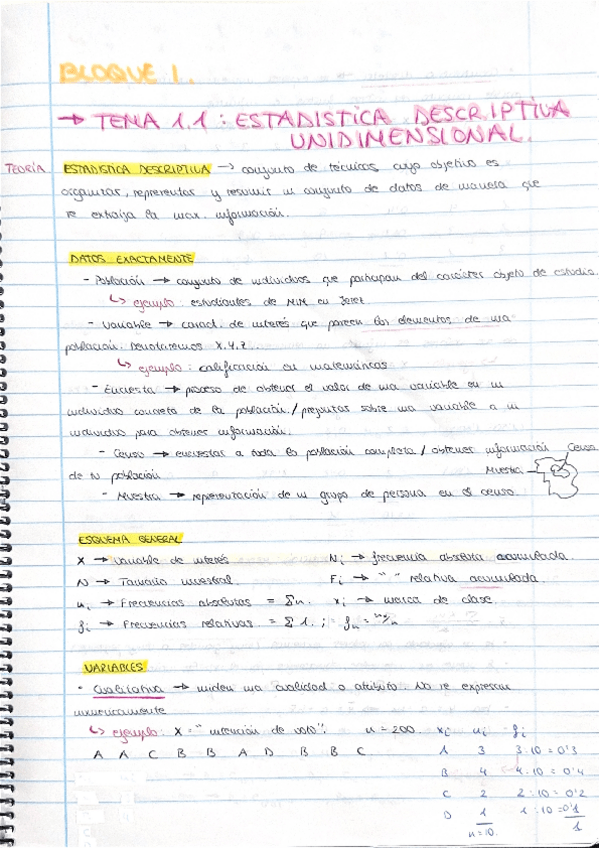 BLOQUE 1.
→ TEMA 1.1 : ESTADISTICA DESCRIPTIVA
UNIDIMENSIONAL.
TEORÍA ESTADISTICA DESCRIPTIVA → conjunto de técnicas cuyo objetivo es
organizar, representar y resumir un conjunto de datos de manera que
se extraija la max. información.
DATOS EXACTAMENTE
- Población → conjunto de individuos que participan del carácter objeto de estudio.
↳ ejemplo: estudiantes de MIM en Jerez.
- Variable → caract. de interés que poseen los elementos de una
población. Denotaremos X.Y.Z.
↳ ejemplo: calificación en matemáticas
- Encuesta → proceso de obtener el valor de una variable en un
individuo concreto de la población. / preguntas sobre una variable a un
individuo para obtener información.
- Censo → encuestar a toda la población completa / obtener información
de N población
Censo
Muestra
- Muestra → representación de un grupo de persona en el censo.
ESQUEMA GENERAL
X → Variable de interés Ni → frecuencia absoluta acumulada.
N → Tamaño muestral. Fi → " " relativa acumulada
ni → Frecuencias absolutas = Σn. xi → marca de clase.
fi → Frecuencias relativas = Σ1. ; fn = ni/n
VARIABLES
• Cualitativa → miden una cualidad o atributo. No se expresan
numéricamente
↳ ejemplo: X = "intención de voto": n = 200. xi ni fi
A A C B B A D B B C A 3 3:10 = 0'3
B 4 4:10 = 0'4
C 2 2:10 = 0'2
D 1 1:10 = 0'1
n=10. 1